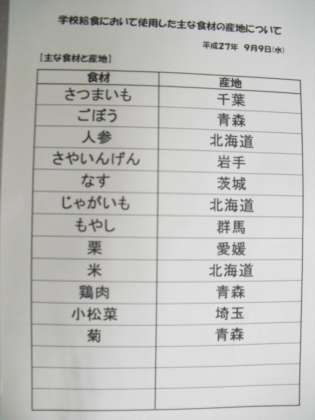 学校給食において使用した主な食材の産地について
平成27年 9月9日(水)
【主な食材と産地】
食材 産地
さつまいも 千葉
ごぼう 青森
人参 北海道
さやいんげん 岩手
なす 茨城
じゃがいも 北海道
もやし 群馬
栗 愛媛
米 北海道
鶏肉 青森
小松菜 埼玉
菊 青森